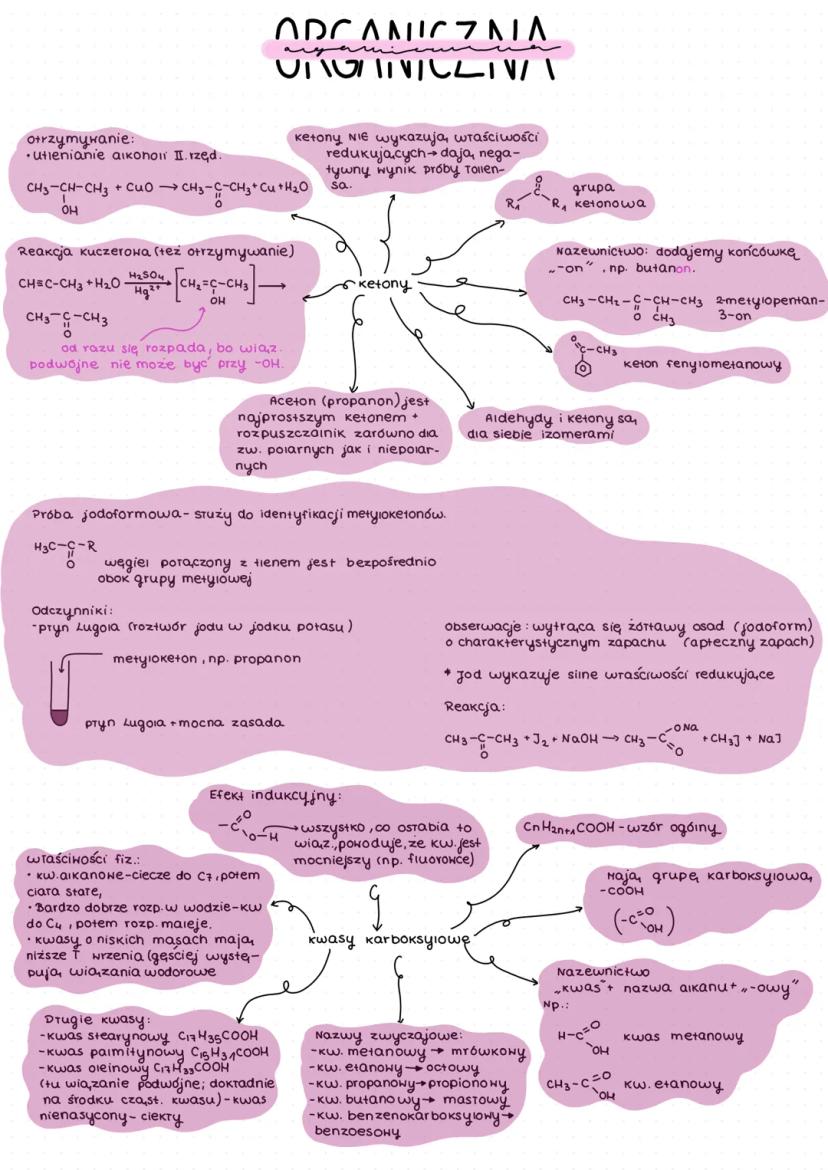 ORGANICZNA
organiczna
otrzymywanie:
• utlenianie alkoholi II.rzęd.
CH₃-CH-CH₃ + CuO → CH₃-C-CH₃+Cu+H₂O
OH
O
ketony NIE wykazują właściwości
redukujących→ dają nega-
tywny wynik próby Tollen-
sa.
O
R₁ C R₁
grupa
ketonowa
Reakcja kuczerowa (też otrzymywanie)
CH≡C-CH₃ + H₂O H₂SO₄ Hg²⁺ → [CH₂=C-CH₃] →
OH
CH₃-C-CH₃
O
od razu się rozpada, bo wiąz.
podwójne nie może być przy -OH.
ketony
Nazewnictwo: dodajemy końcówkę
„-on” , np. butanon.
CH₃-CH₂-C-CH-CH₃ 2-metylopentan-
O CH₃ 3-on
O
C-CH₃
keton fenylometanowy
Aceton (propanon) jest
najprostszym ketonem +
rozpuszczalnik zarówno dla
zw. polarnych jak i niepolar-
nych
Aldehydy i ketony są
dla siebie izomerami
Próba jodoformowa- służy do identyfikacji metyloketonów.
H₃C-C-R
O
węgiel połączony z tlenem jest bezpośrednio
obok grupy metylowej
Odczynniki:
-płyn Lugola (roztwór jodu w jodku potasu)
metyloketon, np. propanon
płyn Lugola + mocna zasada
obserwacje: wytrąca się żółtawy osad (jodoform)
o charakterystycznym zapachu (apteczny zapach)
* Jod wykazuje silne właściwości redukujące
Reakcja:
CH₃-C-CH₃ + J₂ + NaOH → CH₃-C ONa + CH₃J + NaJ
O O
Efekt indukcyjny:
-C O O-H
wszystko, co osłabia to
wiąz., powoduje, że kw. jest
mocniejszy (np. fluorowce)
CnH2n+1COOH - wzór ogólny
właściwości fiz.:
• kw. alkanowe-ciecze do C₇, potem
ciała stałe,
• Bardzo dobrze rozp. w wodzie-kw
do C₄ , potem rozp. maleje.
• kwasy o niskich masach mają
niższe T wrzenia (gęściej wystę-
pują wiązania wodorowe
Mają grupę karboksylową
-COOH
(-C O OH)
kwasy karboksylowe
Nazewnictwo
„kwas”+ nazwa alkanu+ „-owy”
Np.:
H-C O OH kwas metanowy
CH₃-C O OH kw. etanowy
Długie kwasy:
-kwas stearynowy C₁₇H₃₅COOH
-kwas palmitynowy C₁₅H₃₁COOH
-kwas oleinowy C₁₇H₃₃COOH
(tu wiązanie podwójne; dokładnie
na środku cząst. kwasu)-kwas
nienasycony- ciekły
Nazwy zwyczajowe:
-kw. metanowy → mrówkowy
-kw. etanowy → octowy
-kw. propanowy→propionowy
-kw. butanowy → masłowy
-kw. benzenokarboksylowy→
benzoesowy